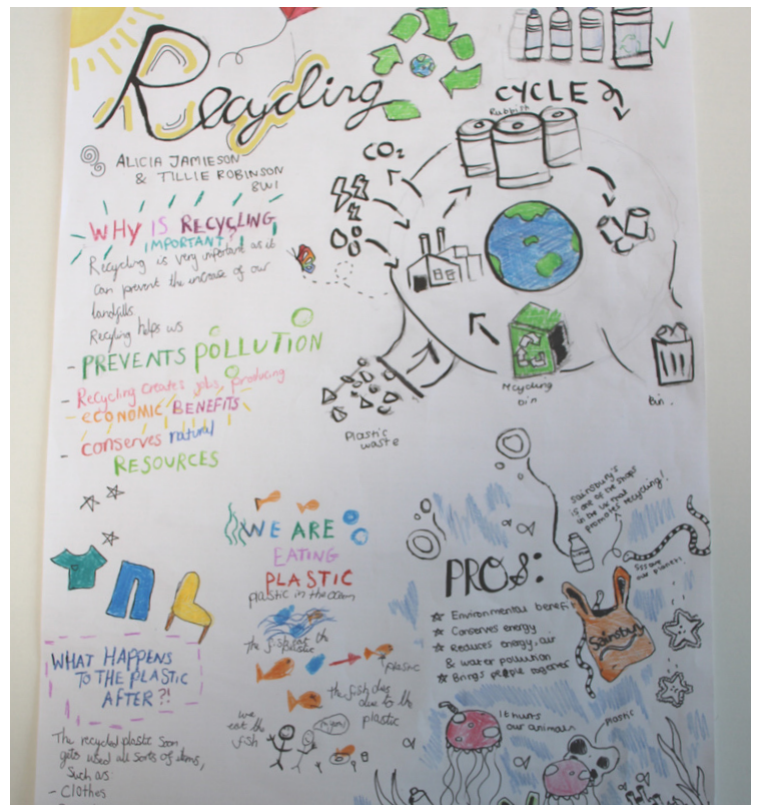 Recycling
CYCLE
Rubbish
CO₂
ALICIA JAMIESON
& TILLIE ROBINSON
8W1
WHY IS RECYCLING
IMPORTANT?!
Recycling is very important as it
can prevent the increase of our
landfills.
Recycling helps us
- PREVENTS POLLUTION
- Recycling creates jobs, producing
ECONOMIC BENEFITS
- conserves natural
RESOURCES
Plastic
waste
recycling
bin
Bin.
WE ARE
EATING
PLASTIC
plastic in the ocean
the fish eat the
plastic
plastic
the fish dies
due to the
plastic
we
eat the
fish
WHAT HAPPENS
TO THE PLASTIC
AFTER?!
The recycled plastic soon
gets used all sorts of items,
Such as:
- Clothes
Sainsbury's
is one of the shops
in the UK that
promotes recycling!
our planet!
PROS:
☆ Environmental benefit
☆ Conserves energy
☆ Reduces energy, air
& water pollution
☆ Brings people together
Sainsbury
It hurts
our animals
plastic